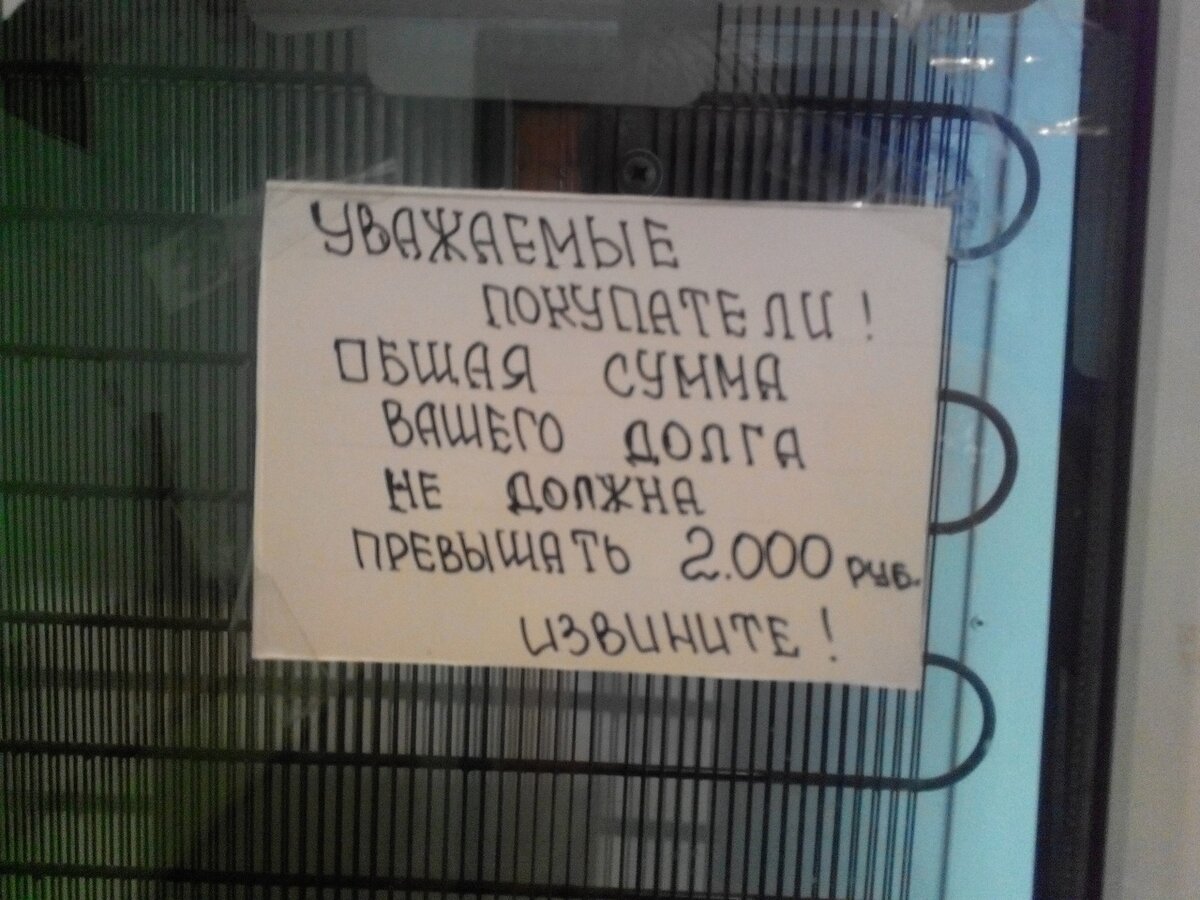 УВАЖАЕМЫЕ
ПОКУПАТЕЛИ!
ОБЩАЯ СУММА
ВАШЕГО ДОЛГА
НЕ ДОЛЖНА
ПРЕВЫШАТЬ 2.000 РУБ.
ИЗВИНИТЕ!